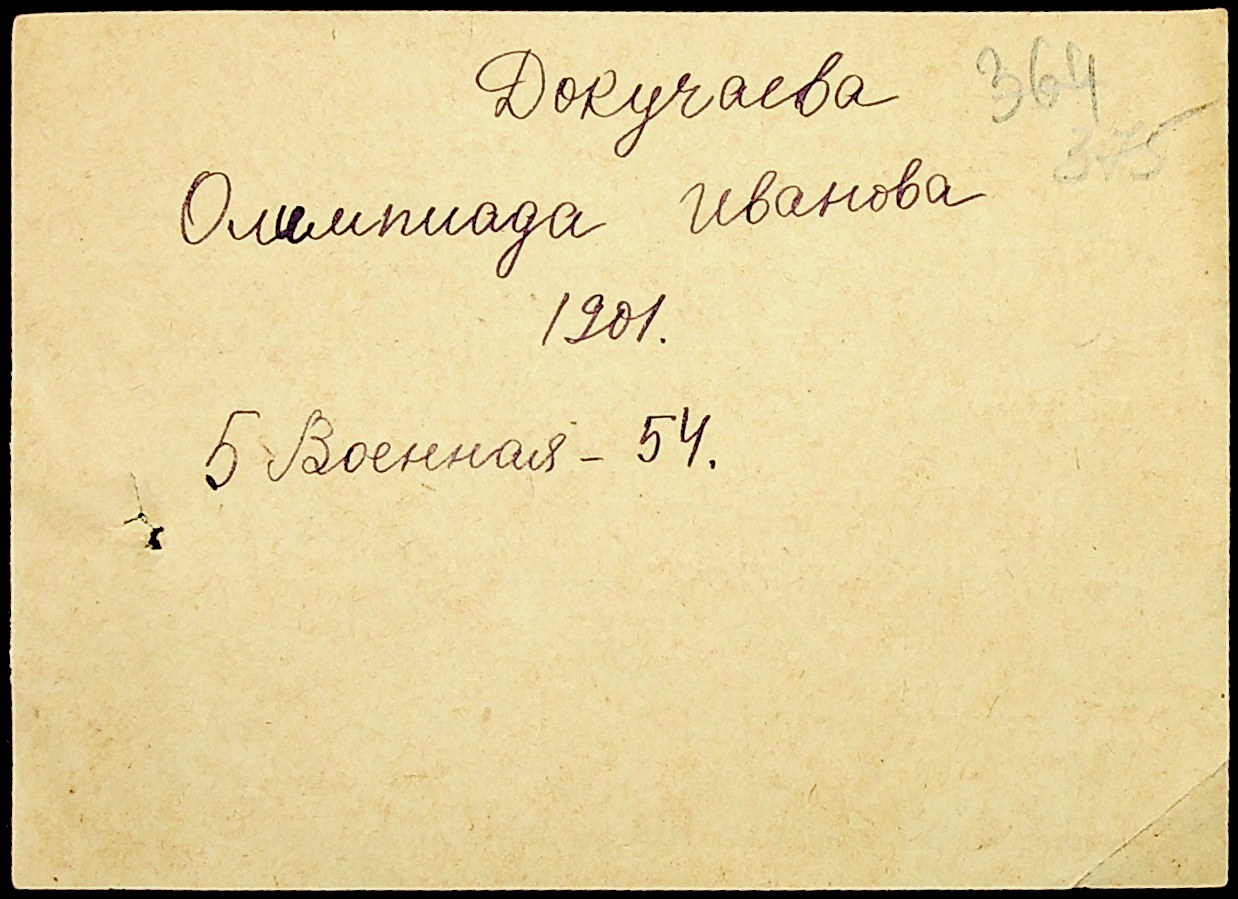 Докучаева 364
375
Олимпиада Иванова
1901.
5 Военная - 54.